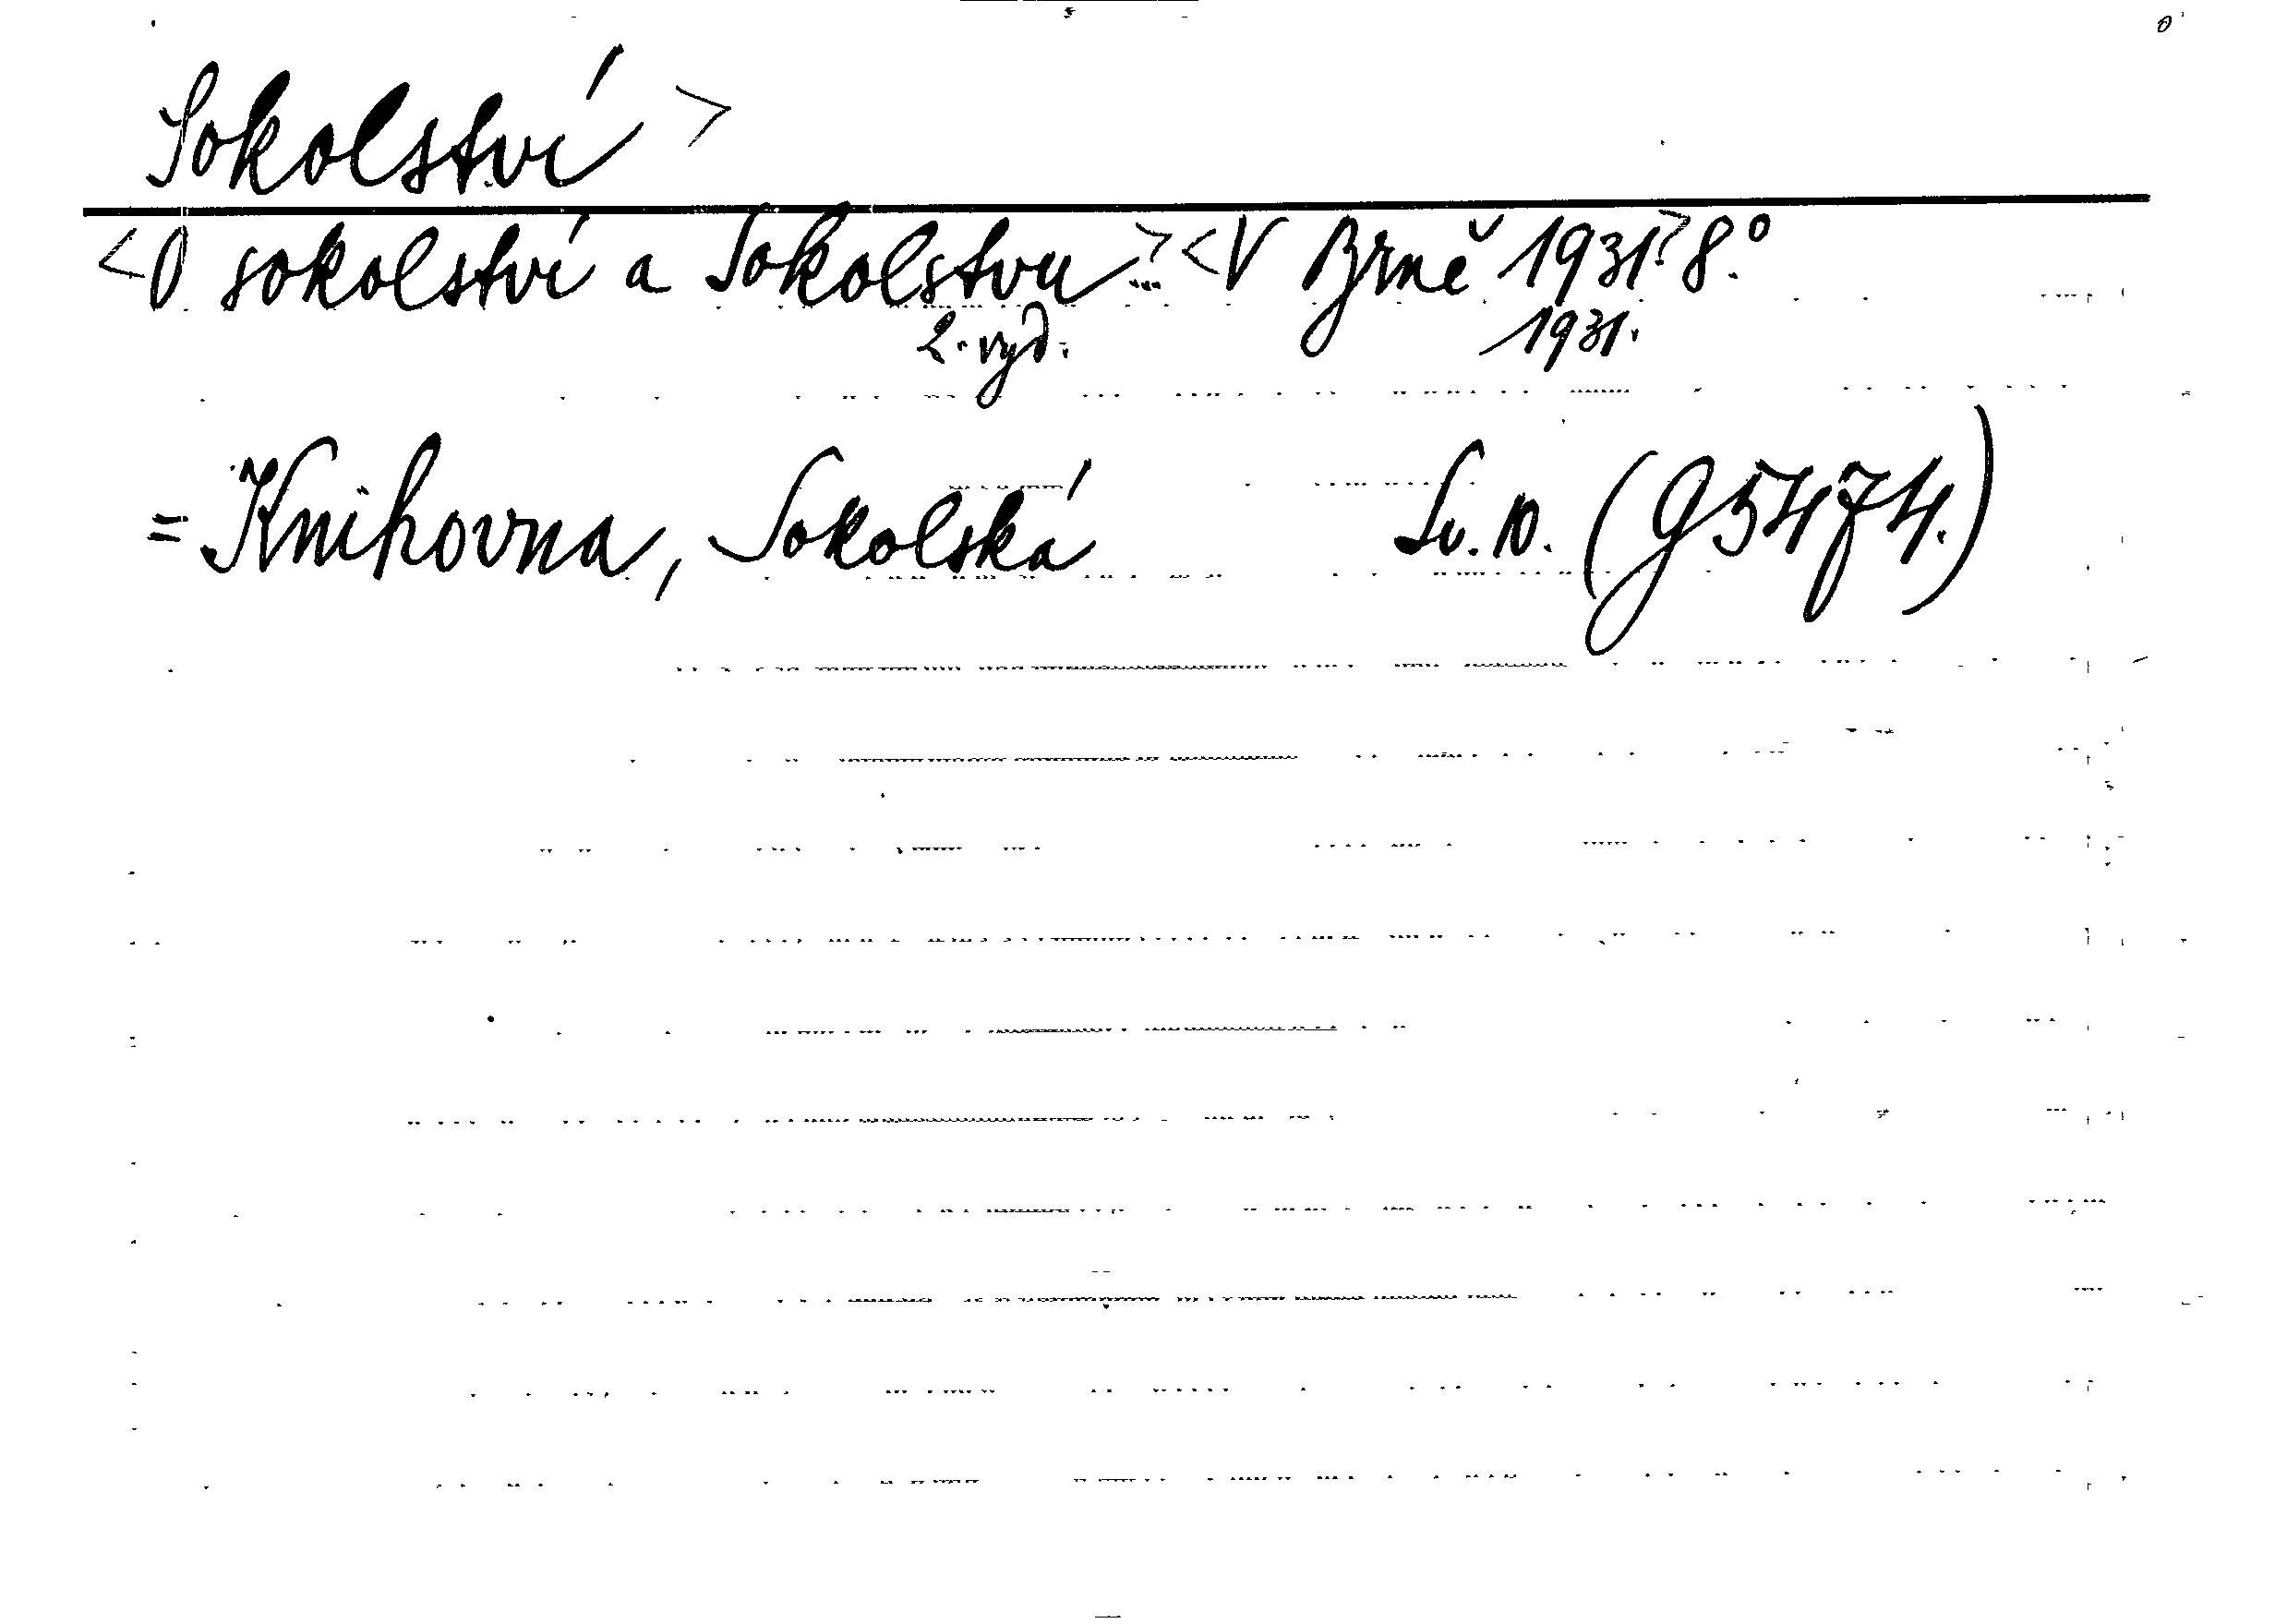 Sokolství >
<O sokolství a Sokolstvu...> <V Brně 1931.> 8.°
2. vyd. 1931.
= Knihovna, Sokolská Sv. 10. (g 5474.)